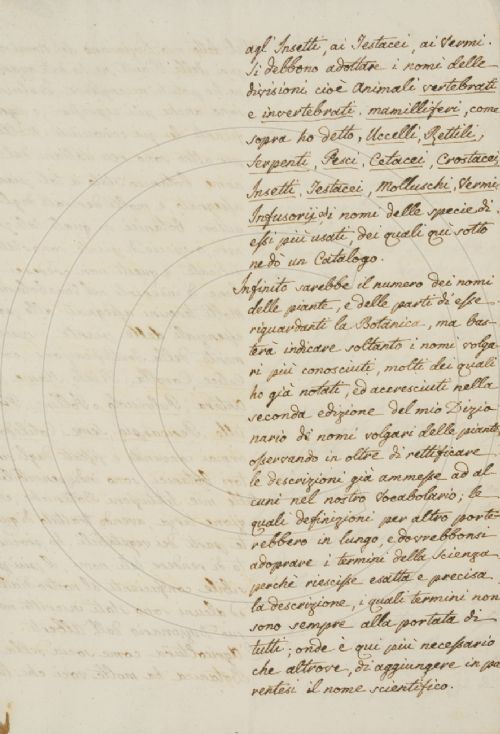 agl' Insetti, ai Testacei, ai Vermi.
Si debbono adottare i nomi delle
divisioni cioè Animali vertebrati
e invertebrati. mamilliferi, come
sopra ho detto, Uccelli, Rettili,
Serpenti, Pesci, Cetacei, Crostacei,
Insetti, Testacei, Molluschi, Vermi,
Infusorij, di nomi delle specie di
essi più usati, dei quali qui sotto
ne dò un Catalogo.
Infinito sarebbe il numero dei nomi
delle piante, e delle parti di esse
riguardanti la Botanica, ma bas-
terà indicare soltanto i nomi volga
ri più conosciuti, molti dei quali
ho già notati, ed accresciuti nella
seconda edizione del mio Dizio
nario di nomi volgari delle piante,
osservando in oltre di rettificare
le descrizioni già ammesse ad al
cuni nel nostro Vocabolario; le
quali definizioni per altro porte
rebbero in lungo, e dovrebbonsi
adoprare i termini della Scienza
perchè riescisse esatta e precisa
la descrizione, i quali termini non
sono sempre alla portata di
tutti; onde è qui più necessario
che altrove, di aggiungere in pa
rentesi il nome scientifico.